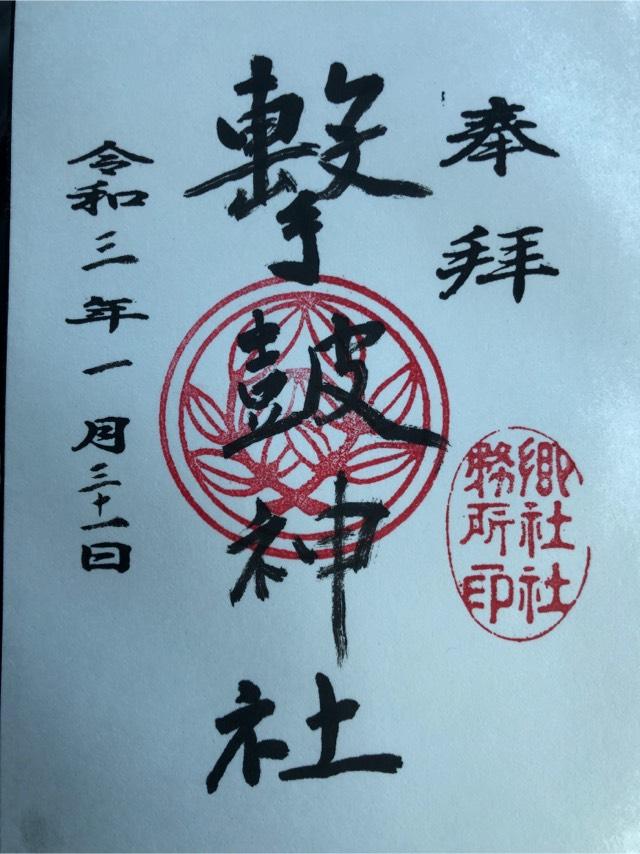 奉拝
郷社社
務所印
撃鼓神社
令和三年一月三十一日